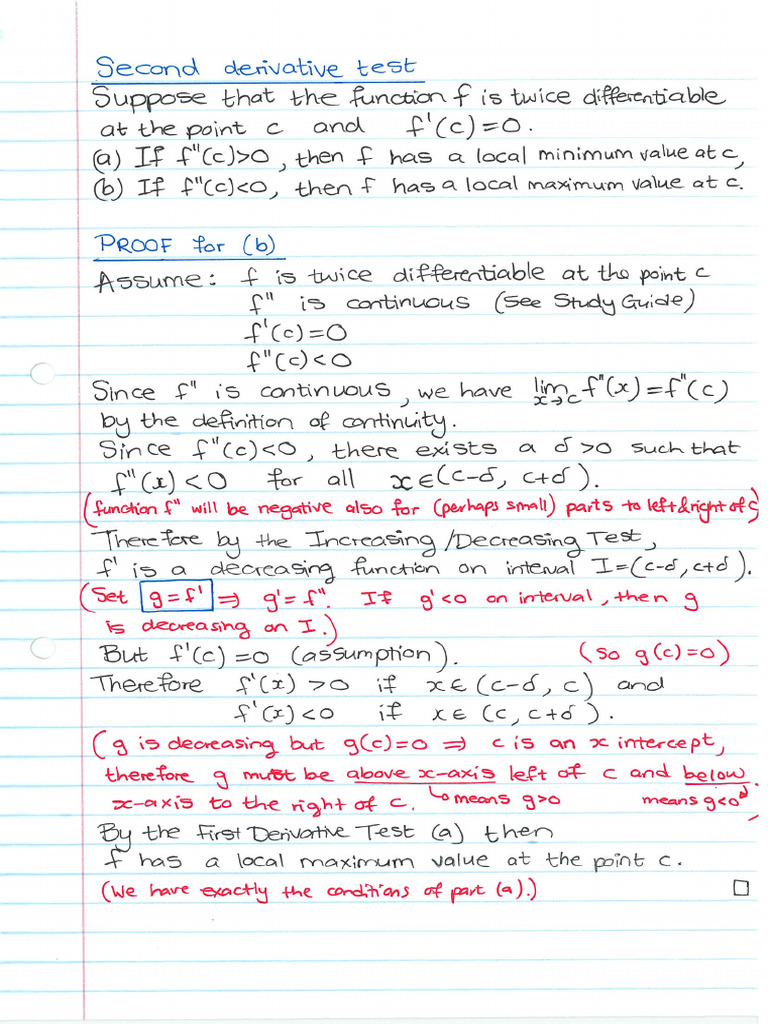 Second derivative test
Suppose that the function f is twice differentiable
at the point c and f'(c)=0.
(a) If f"(c)>0, then f has a local minimum value at c,
(b) If f"(c)<0, then f has a local maximum value at c.
PROOF for (b)
Assume: f is twice differentiable at the point c
f" is continuous (see Study Guide)
f'(c)=0
f"(c)<0
Since f" is continuous, we have lim x→c f"(x)=f"(c)
by the definition of continuity.
Since f"(c)<0, there exists a δ>0 such that
f"(x)<0 for all x∈(c-δ, c+δ).
(function f" will be negative also for (perhaps small) parts to left & right of c)
Therefore by the Increasing/Decreasing Test,
f' is a decreasing function on interval I=(c-δ, c+δ).
(Set g=f' ⇒ g'=f". If g'<0 on interval, then g
is decreasing on I.)
But f'(c)=0 (assumption). (so g(c)=0)
Therefore f'(x)>0 if x∈(c-δ, c) and
f'(x)<0 if x∈(c, c+δ).
(g is decreasing but g(c)=0 ⇒ c is an x intercept,
therefore g must be above x-axis left of c and below
x-axis to the right of c. ↳means g>0 means g<0)
By the First Derivative Test (a) then
f has a local maximum value at the point c.
(We have exactly the conditions of part (a).) □